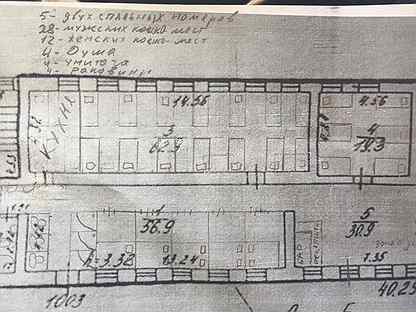 5- двух спальных номеров
28- мужских койко мест
12- женских койко-мест
4- Душа
4- унитаза
4- раковины
14.56
4.56
Кухня
3
62.9
4
19.3
1
56.9
5
30.9
h=3.32
13.24
7.35
1003
40.25